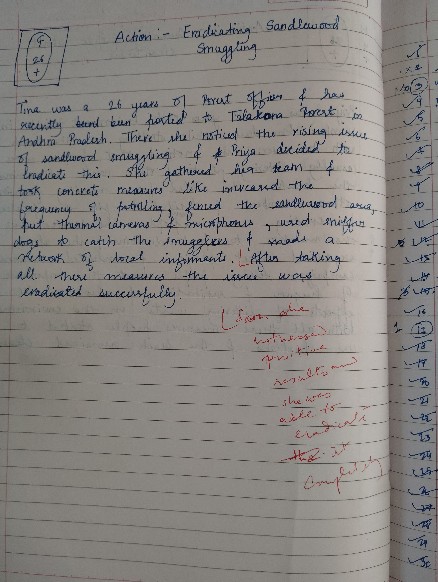 Action:- Eradicating Sandlewood
Smuggling
♀
26
+
Tina was a 26 years of Forest officer & has
recently been posted to Talakona Forest in
Andhra Pradesh. There she noticed the rising issue
of sandlewood smuggling & Priya decided to
eradiate this. She gathered her team &
took concrete measures like increased the
frequency of patrolling, fenced the sandlewood area,
put thermal cameras & microphones, used sniffer
dogs to catch the smugglers & made a
network of local informants. After taking
all these measures the issue was
eradicated successfully.
Soon she
witnessed
positive
results and
she was
able to
eradicate
it
completely